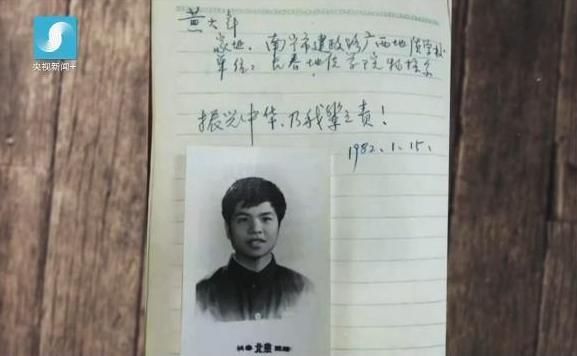 央视新闻+
黄大年
家址：南宁市建政路广西地质学校
单位：长春地质学院物探系
振兴中华，乃我辈之责！
1982.1.15.
长春 北京 照相